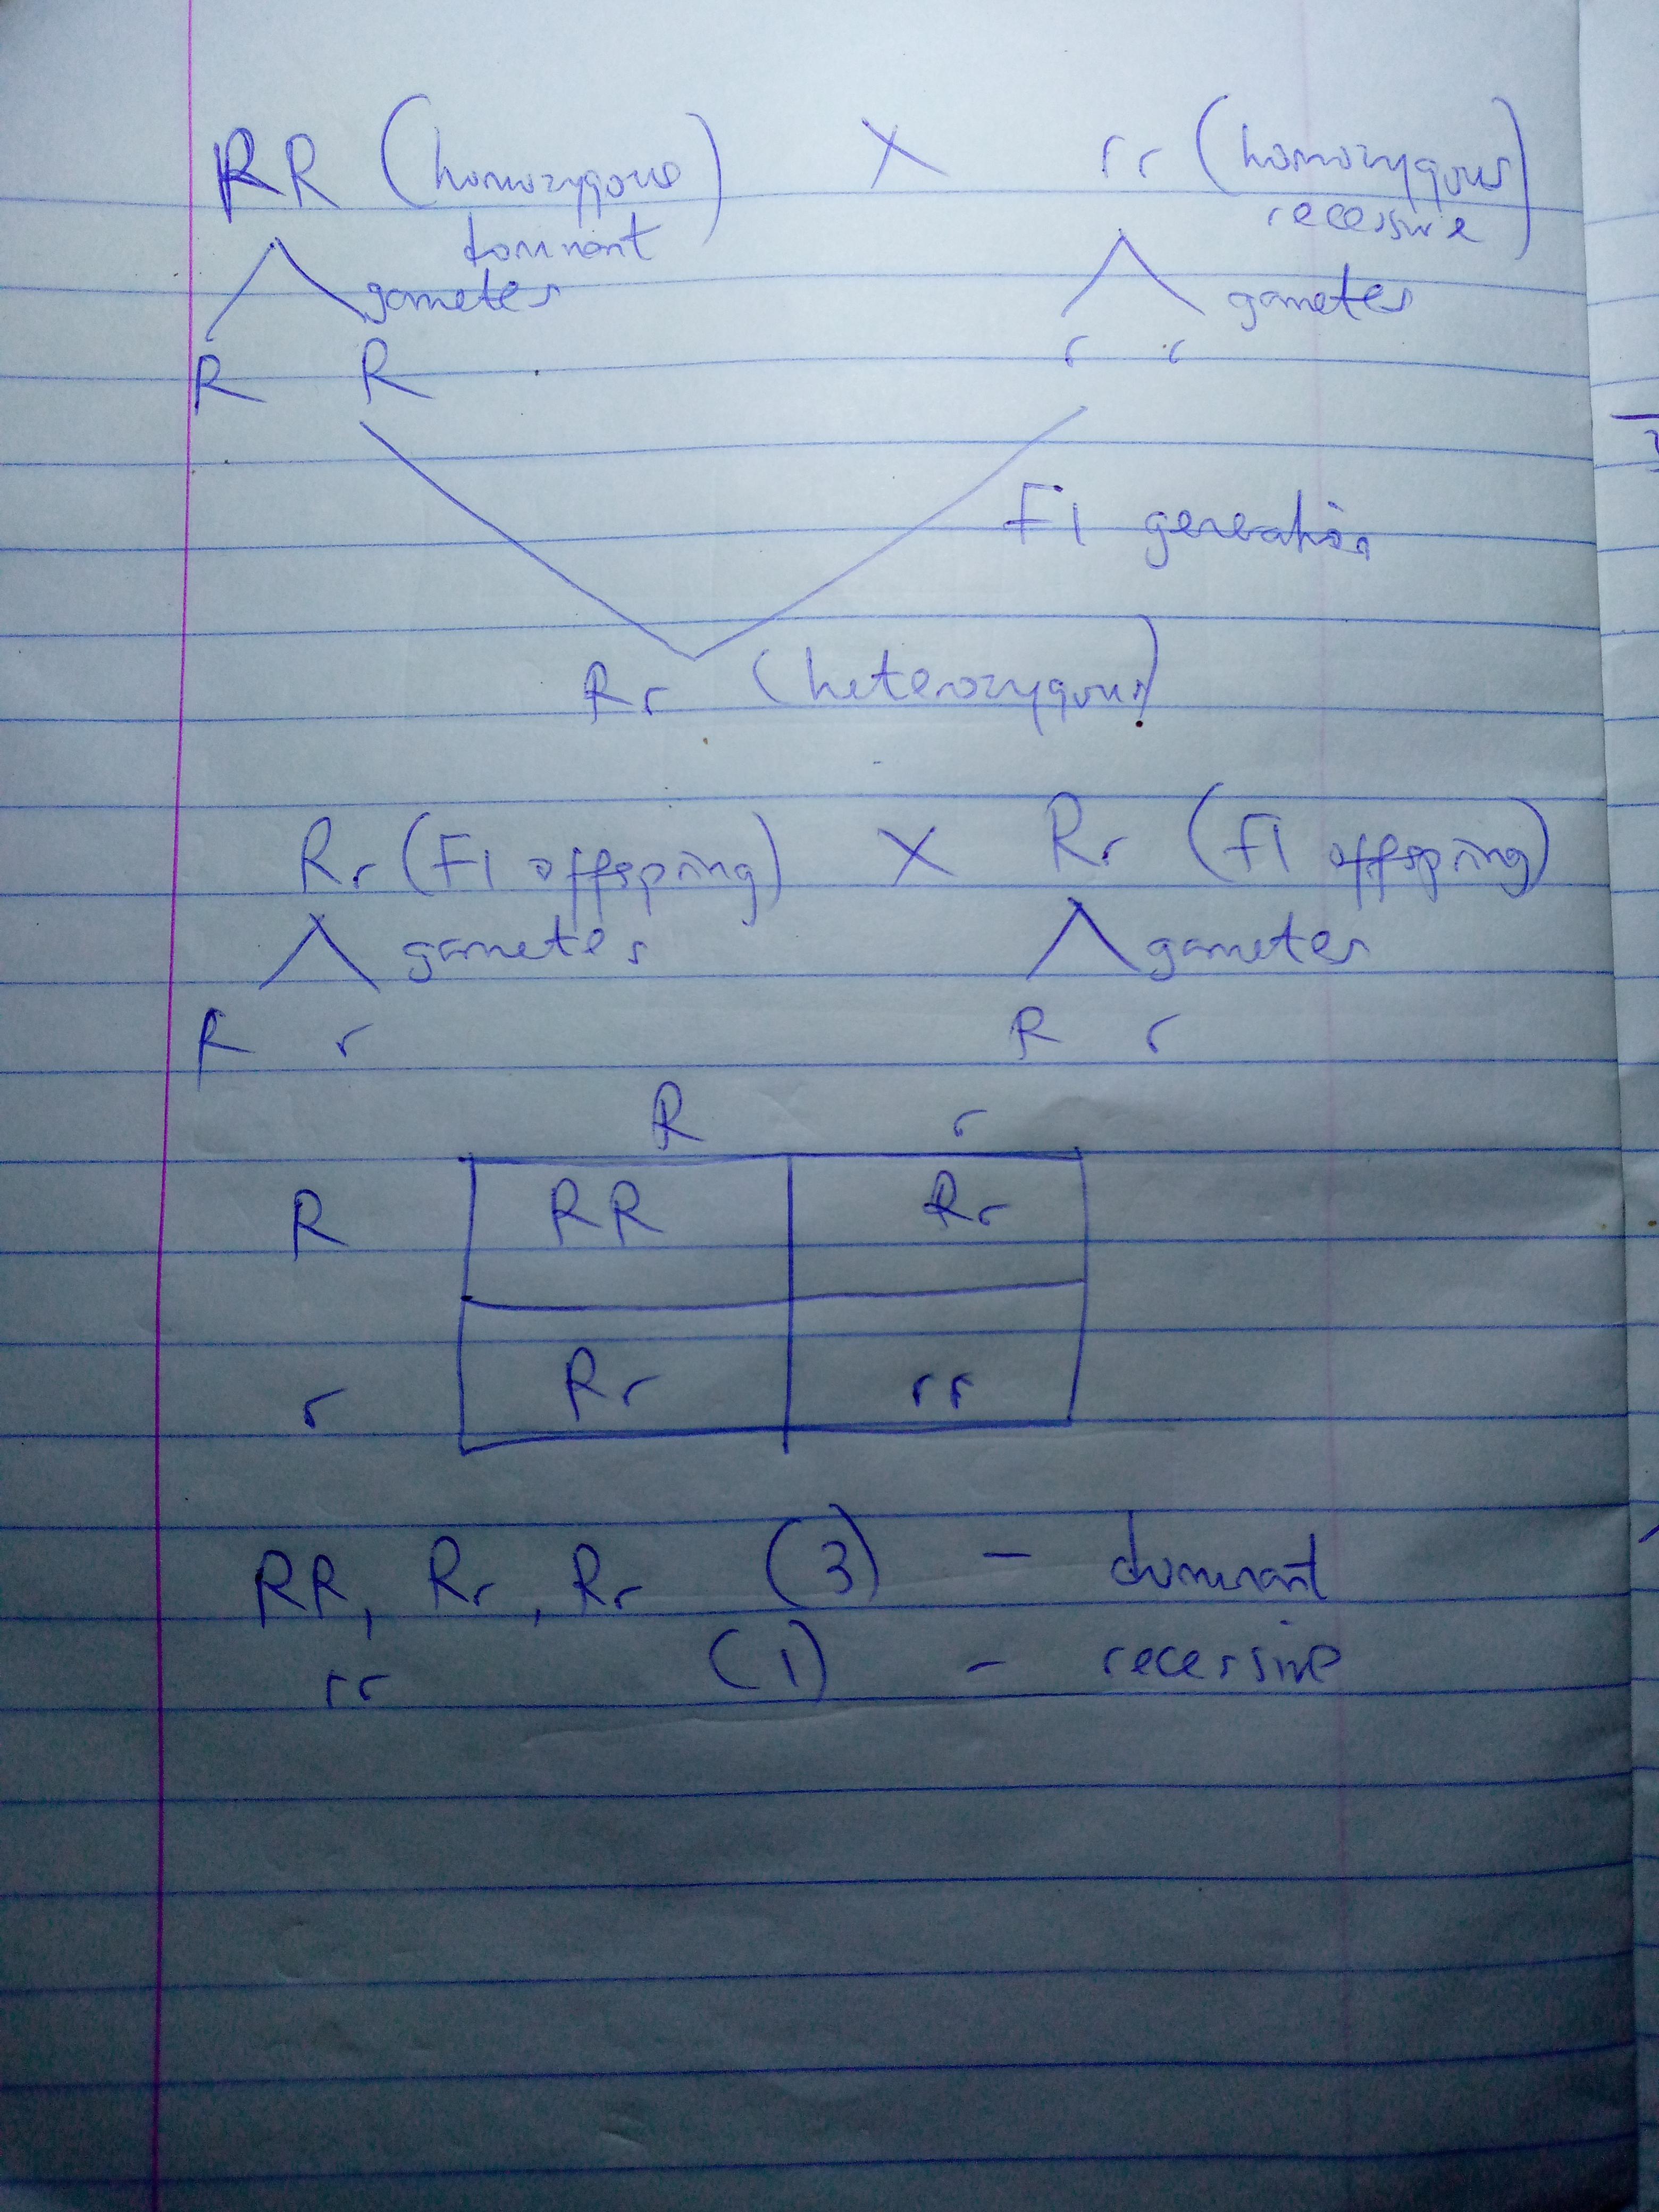 RR (homozygous dominant) X rr (homozygous recessive)
gametes gametes
R R r r
F1 generation
Rr (heterozygous)
Rr (F1 offspring) X Rr (F1 offspring)
gametes gametes
R r R r
R r
R RR Rr
r Rr rr
RR, Rr, Rr (3) - dominant
rr (1) - recessive